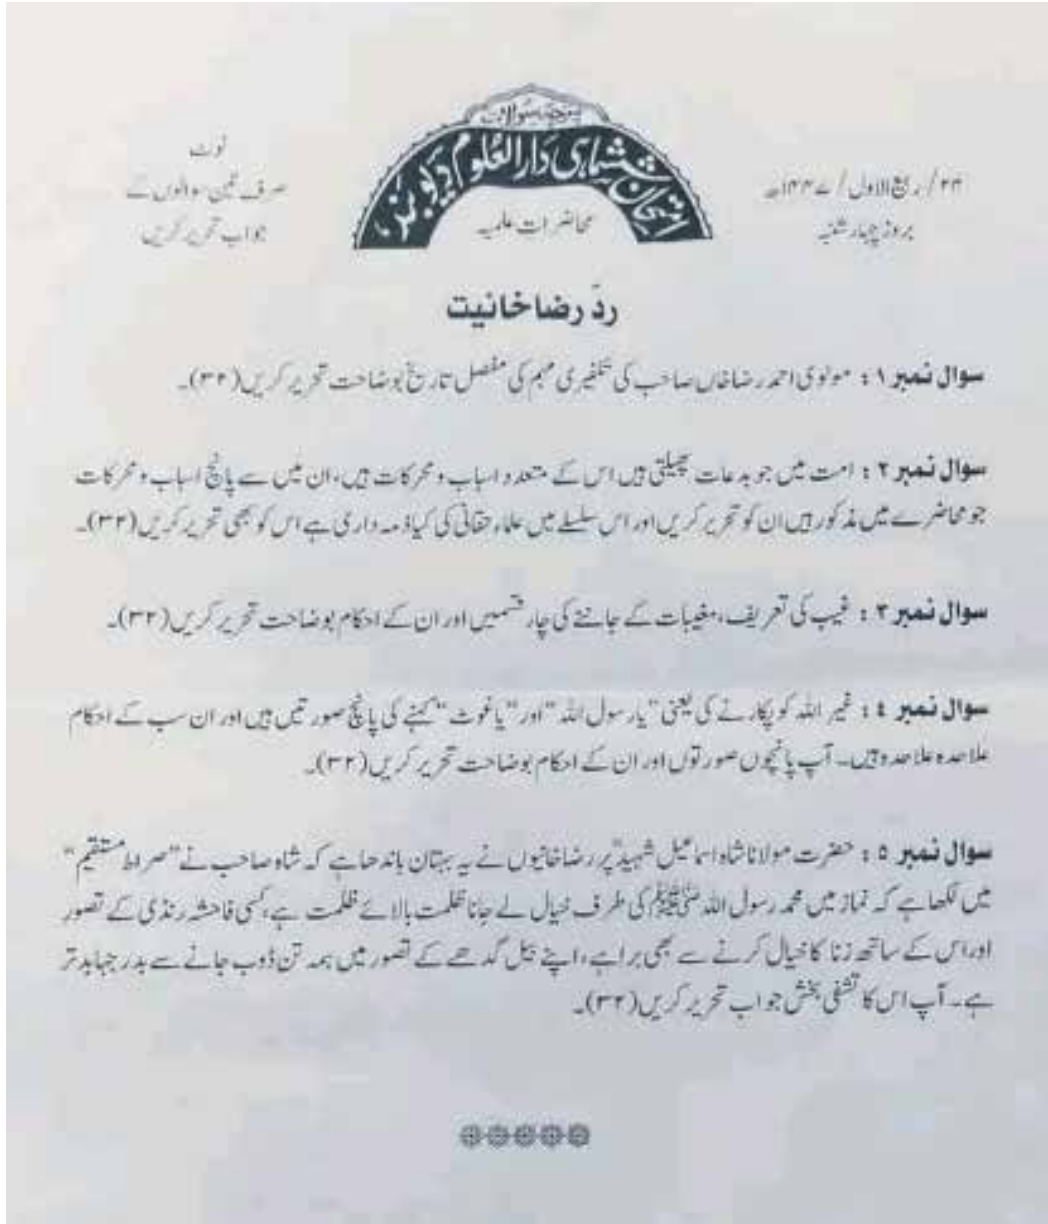 پرچہ سوالات
امتحان ششماہی دارالعلوم دیوبند
محاضرات علمیہ
۲۴/ربیع الاول/۱۴۴۷ھ
بروز چہار شنبہ
نوٹ
صرف تین سوالوں کے
جواب تحریر کریں
ردّ رضاخانیت
سوال نمبر ۱ : مولوی احمد رضاخاں صاحب کی تکفیری مہم کی مفصل تاریخ بوضاحت تحریر کریں(۳۴)۔
سوال نمبر ۲ : امت میں جو بدعات پھیلتی ہیں اس کے متعدد اسباب و محرکات ہیں،ان میں سے پانچ اسباب و محرکات
جو محاضرے میں مذکور ہیں ان کو تحریر کریں اور اس سلسلے میں علماء حقانی کی کیا ذمہ داری ہے اس کو بھی تحریر کریں(۳۳)۔
سوال نمبر ۳ : غیب کی تعریف،مغیبات کے جاننے کی چار قسمیں اور ان کے احکام بوضاحت تحریر کریں(۳۳)۔
سوال نمبر ٤ : غیر اللہ کو پکارنے کی یعنی "یا رسول اللہ" اور "یا غوث" کہنے کی پانچ صورتیں ہیں اور ان سب کے احکام
علاحدہ علاحدہ ہیں۔ آپ پانچوں صورتوں اور ان کے احکام بوضاحت تحریر کریں(۳۳)۔
سوال نمبر ۵ : حضرت مولانا شاہ اسماعیل شہیدؒ پر رضاخانیوں نے یہ بہتان باندھا ہے کہ شاہ صاحب نے "صراط مستقیم"
میں لکھا ہے کہ نماز میں محمد رسول اللہ ﷺ کی طرف خیال لے جانا ظلمت بالائے ظلمت ہے،کسی فاحشہ رنڈی کے تصور
اور اس کے ساتھ زنا کا خیال کرنے سے بھی برا ہے،اپنے بیل گدھے کے تصور میں ہمہ تن ڈوب جانے سے بدرجہا بدتر
ہے۔ آپ اس کا تشفی بخش جواب تحریر کریں(۳۳)۔